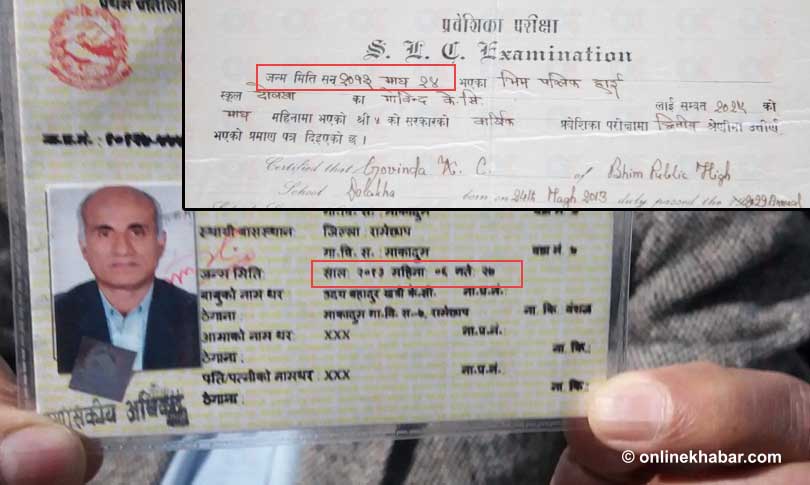 प्रवेशिका परीक्षा
S. L. C. Examination
जन्म मिति सन् २०१३ माघ २४ भएका भिम पब्लिक हाई
स्कूल दोलखा का गोविन्द के.सि. लाई सम्वत २०२९ को
माघ महिनामा भएको श्री ५ को सरकारको वार्षिक प्रवेशिका परीक्षामा द्वितीय श्रेणीमा उत्तीर्ण
भएको प्रमाण पत्र दिइएको छ ।
Certified that Govinda K. C. of Bhim Public High
School Dolakha born on 24th Magh 2013 duly passed the 2029 Annual
स्थायी बासस्थान: जिल्ला: रामेछाप
गा.वि. स.: माकादुम वडा नं ७
जन्म मिति: साल २०१३ महिना ०६ गते २७
बाबुको नाम थर उदय बहादुर खत्री के.सी. ना.प्र.नं.:
ठेगाना: माकादुम गा.वि. स.-७, रामेछाप ना. कि. वंशज
आमाको नाम थर: XXX ना.प्र.नं.:
ठेगाना: ना. कि.:
पति/पत्नीको नामथर: XXX ना.प्र.नं.:
ठेगाना: ना कि:
© onlinekhabar.com